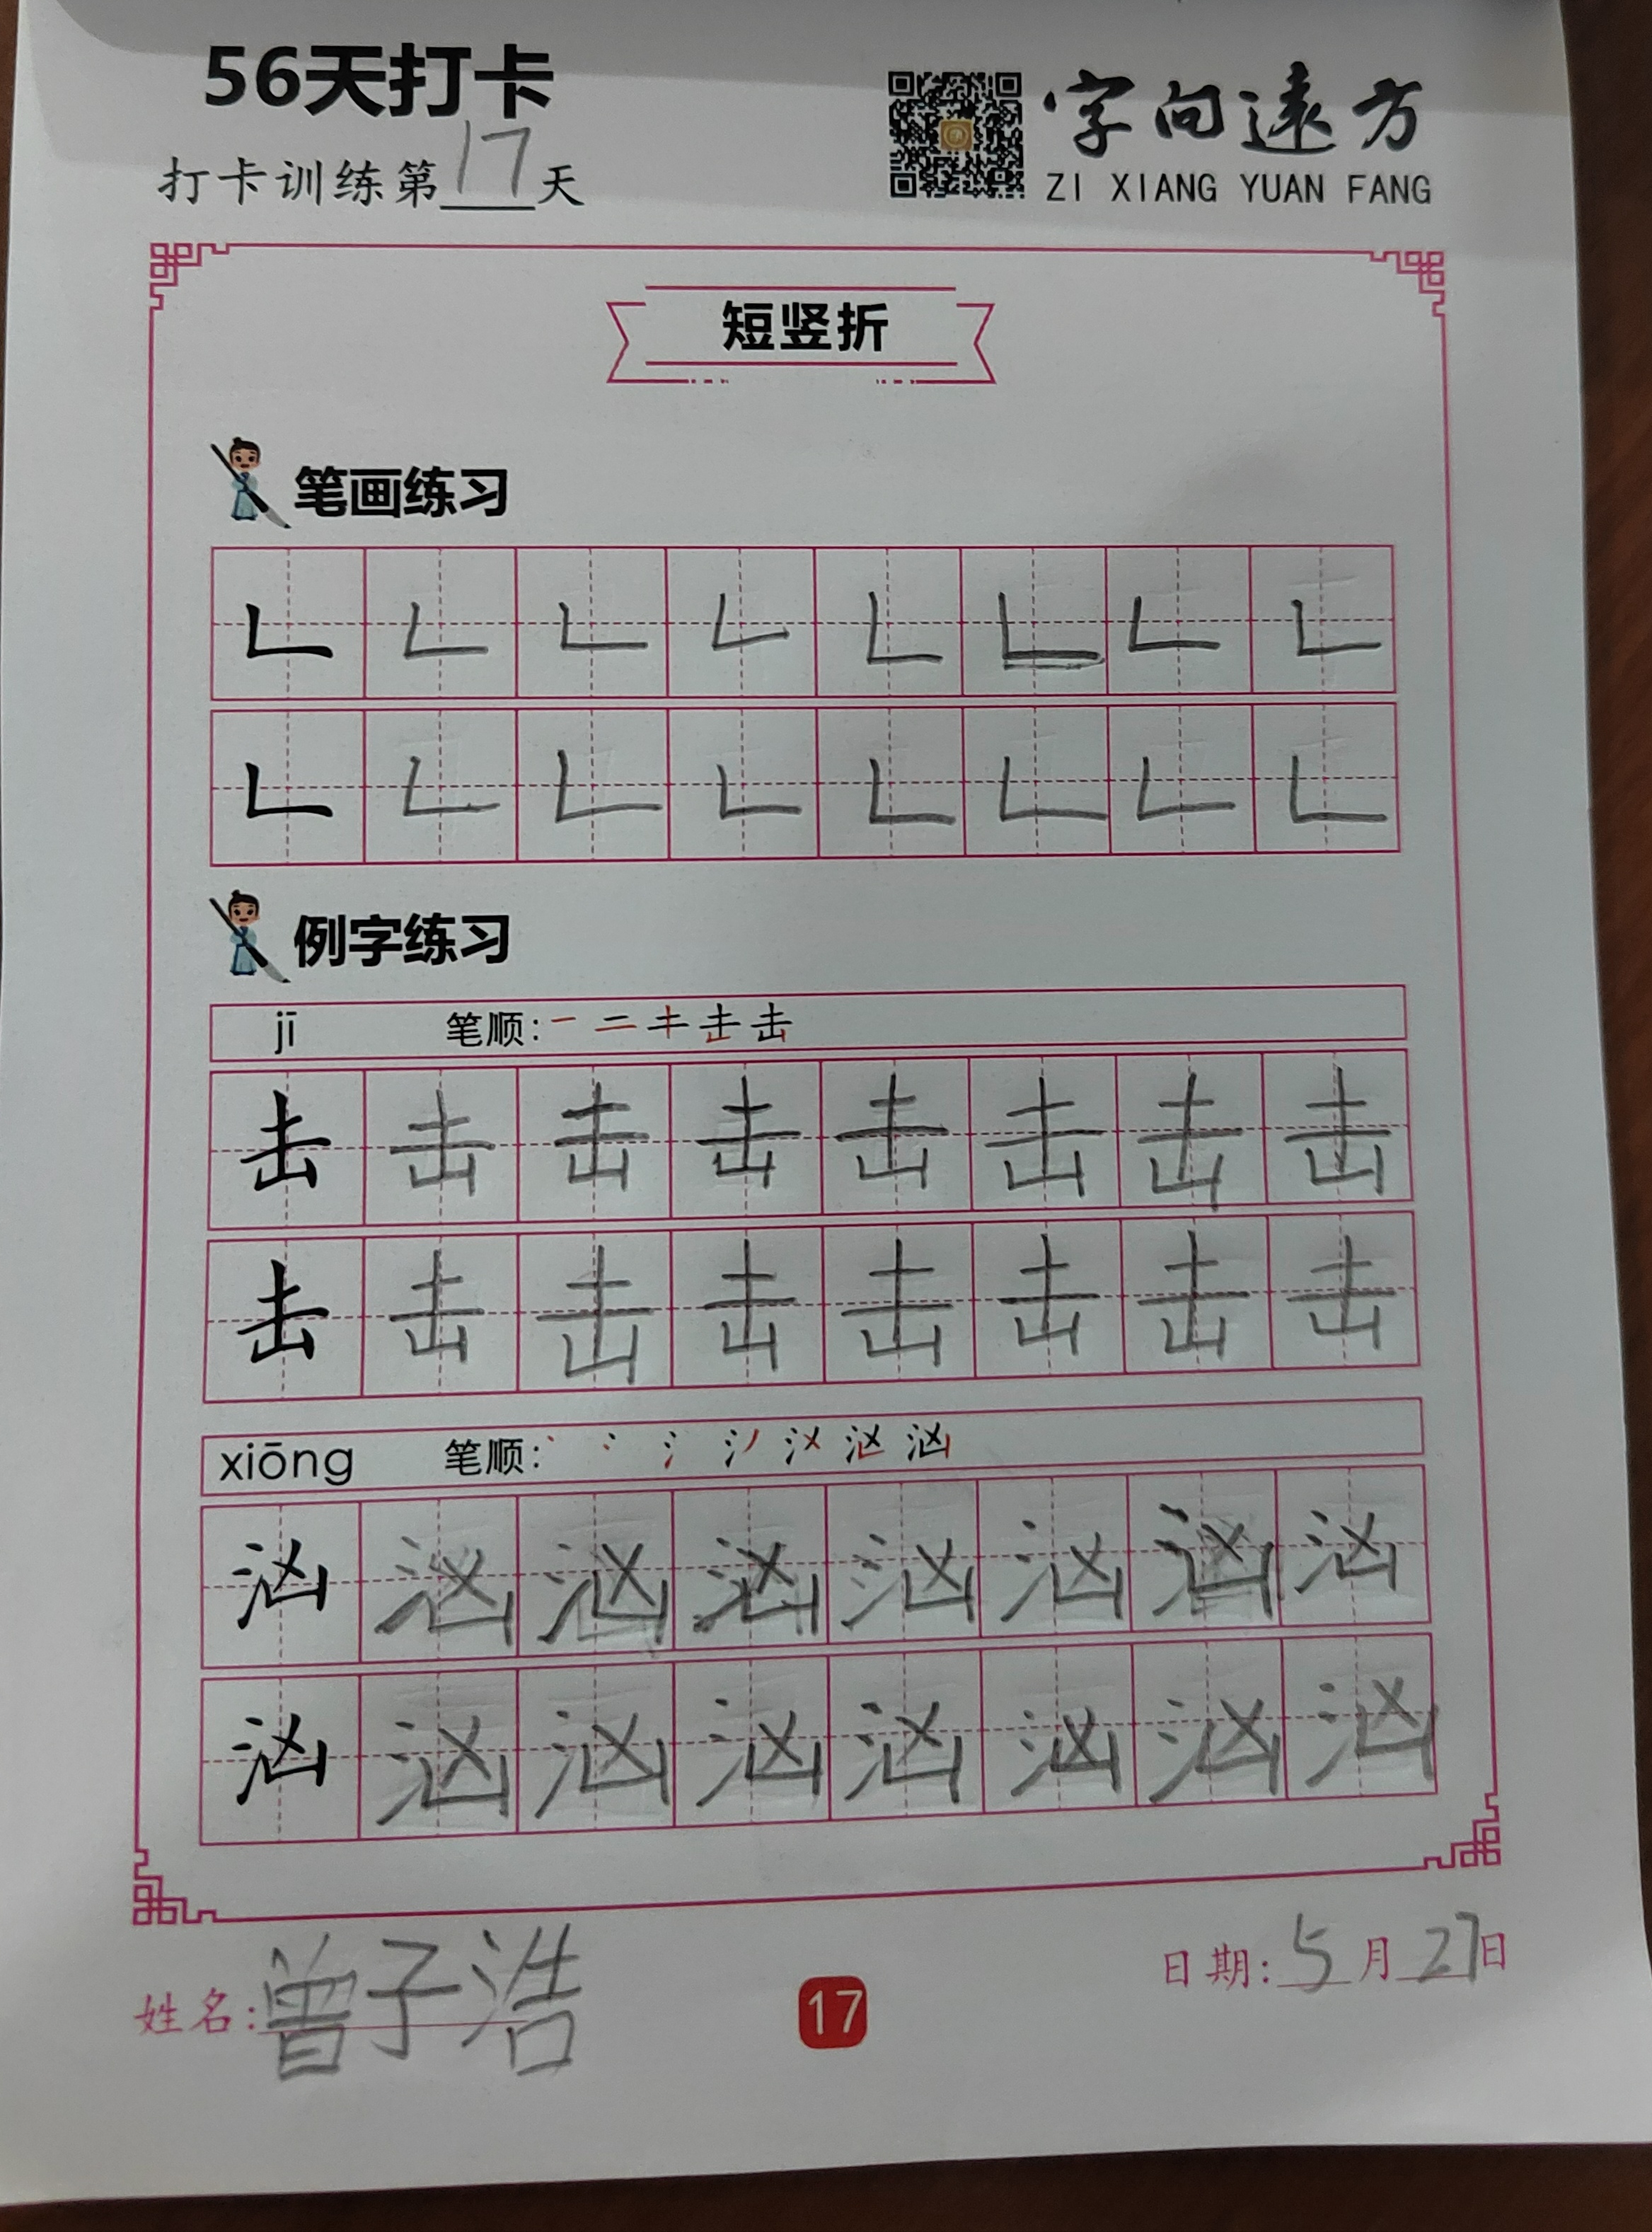 56天打卡
打卡训练第17天
字向遠方
ZI XIANG YUAN FANG
短竖折
笔画练习
𠃊 𠃊 𠃊 𠃊 𠃊 𠃊 𠃊 𠃊
𠃊 𠃊 𠃊 𠃊 𠃊 𠃊 𠃊 𠃊
例字练习
jī 笔顺: 一 二 キ 击 击
击 击 击 击 击 击 击 击
击 击 击 击 击 击 击 击
xiōng 笔顺: 汹
汹 汹 汹 汹 汹 汹 汹 汹
汹 汹 汹 汹 汹 汹 汹 汹
姓名:曾子浩
17
日期:5月27日